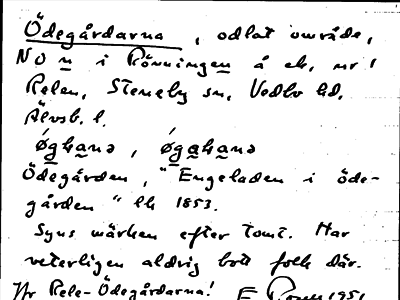 Ödegårdarna, odlat område,
NO n i Rönningen å ek. nr 1
Relen, Steneby sn, Vedbo hd,
Älvsb. l.
øghanə, øgahanə
Ödegården, "Engeladen i öde-
gården" lh 1853.
Syns märken efter tomt. Har
veterligen aldrig bott folk där.
Jfr Rele-Ödegårdarna! E 1951